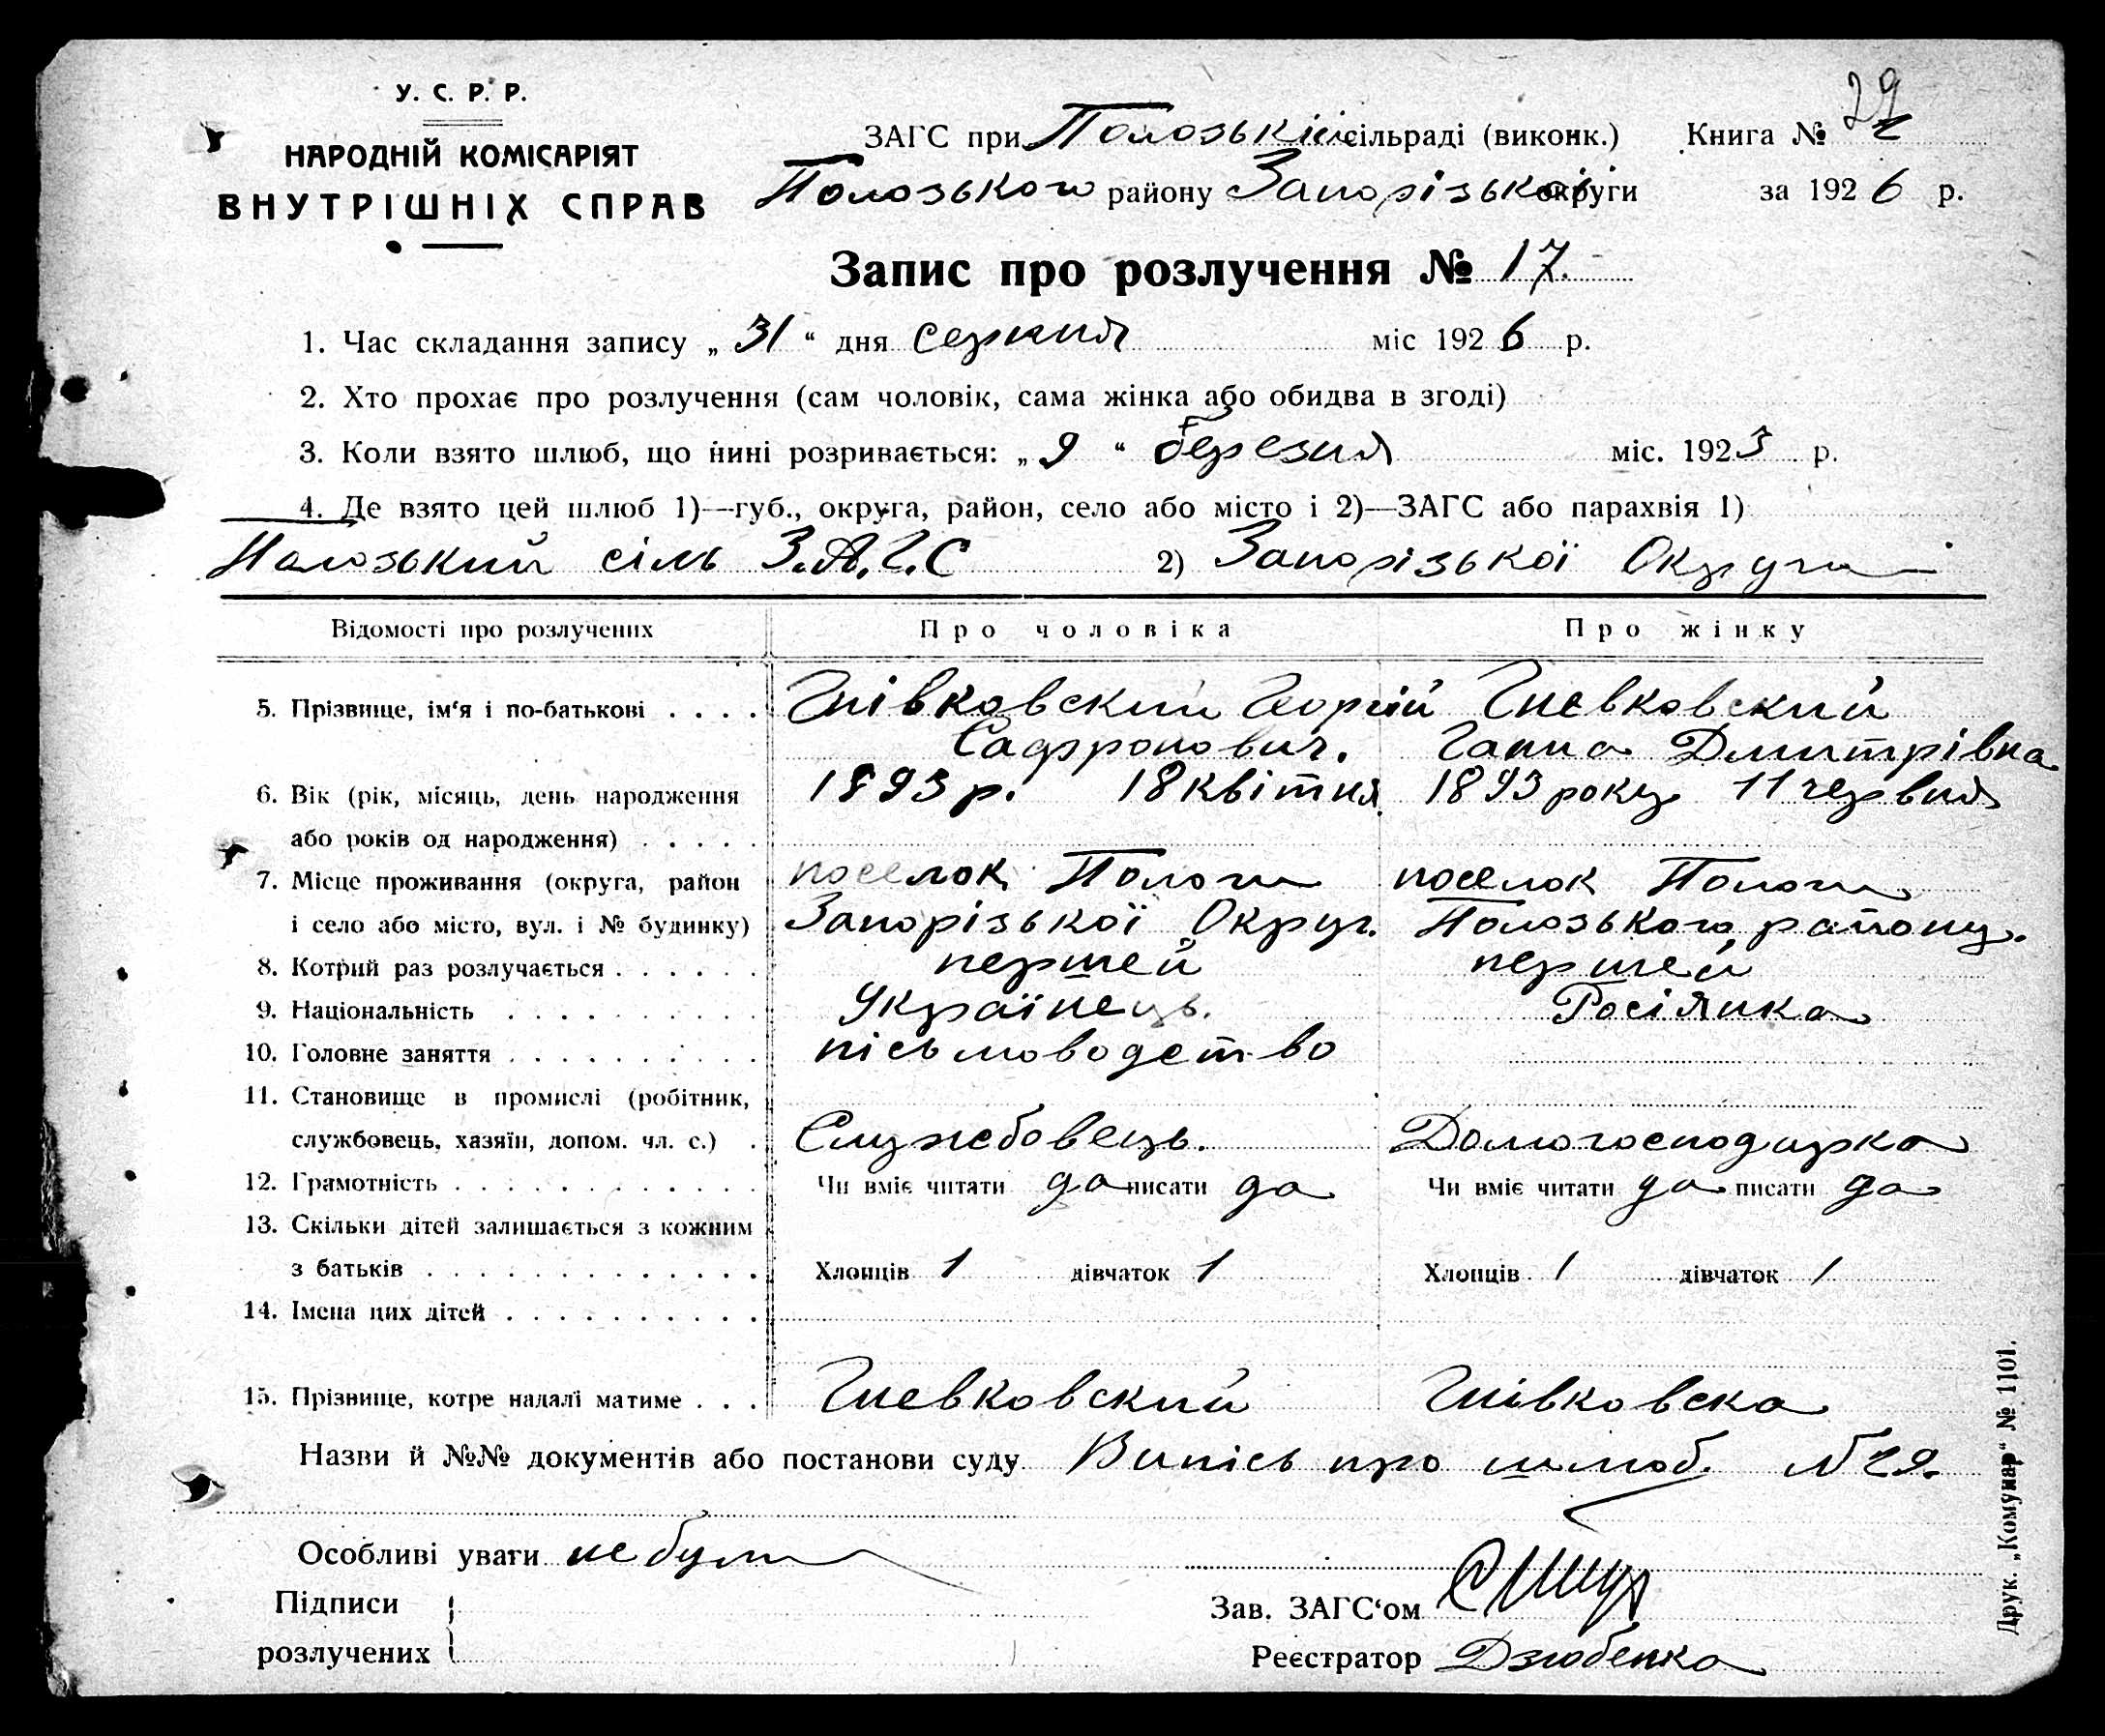 29
У. С. Р. Р.
НАРОДНІЙ КОМІСАРІЯТ
ВНУТРІШНІХ СПРАВ
ЗАГС при Полозькій сільраді (виконк.) Книга №
Полозького району Запорізької округи за 1926 р.
Запис про розлучення № 17.
1. Час складання запису „31“ дня серпня міс 1926 р.
2. Хто прохає про розлучення (сам чоловік, сама жінка або обидва в згоді)
3. Коли взято шлюб, що нині розривається: „9“ березня міс. 1923 р.
4. Де взято цей шлюб 1)—губ., округа, район, село або місто і 2)—ЗАГС або парахвія 1)
Полозький сіль З.А.Г.С 2) Запорізької Округи
Відомості про розлучених Про чоловіка Про жінку
5. Прізвище, ім'я і по-батькові . . . . Гнівковский Георгій Гнєвковский
Сафронович. Ганна Дмитрівна
6. Вік (рік, місяць, день народження 1893 р. 18 квітня 1893 року 11 червня
або років од народження) . . . . .
7. Місце проживання (округа, район поселок Пологи поселок Пологи
і село або місто, вул. і № будинку) Запорізької Округ. Полозького району.
8. Котрий раз розлучається . . . . . . першей першей
9. Національність . . . . . . . . . . Українець. Росіянка
10. Головне заняття . . . . . . . . . . пісьмоводство
11. Становище в промислі (робітник,
службовець, хазяїн, допом. чл. с.) . Службовець. Домогосподарка
12. Грамотність . . . . . . . . . . . . Чи вміє читати да писати да Чи вміє читати да писати да
13. Скільки дітей залишається з кожним
з батьків . . . . . . . . . . . . . Хлопців 1 дівчаток 1 Хлопців 1 дівчаток 1
14. Імена цих дітей . . . . . . . . . .
15. Прізвище, котре надалі матиме . . . Гневковский Гнівковска
Назви й №№ документів або постанови суду Випісь про шлюб. № 29.
Особливі уваги не були
Підписи
розлучених
Зав. ЗАГС'ом
Реєстратор Дзюбенко
Друк. „Комунар“ № 1101.